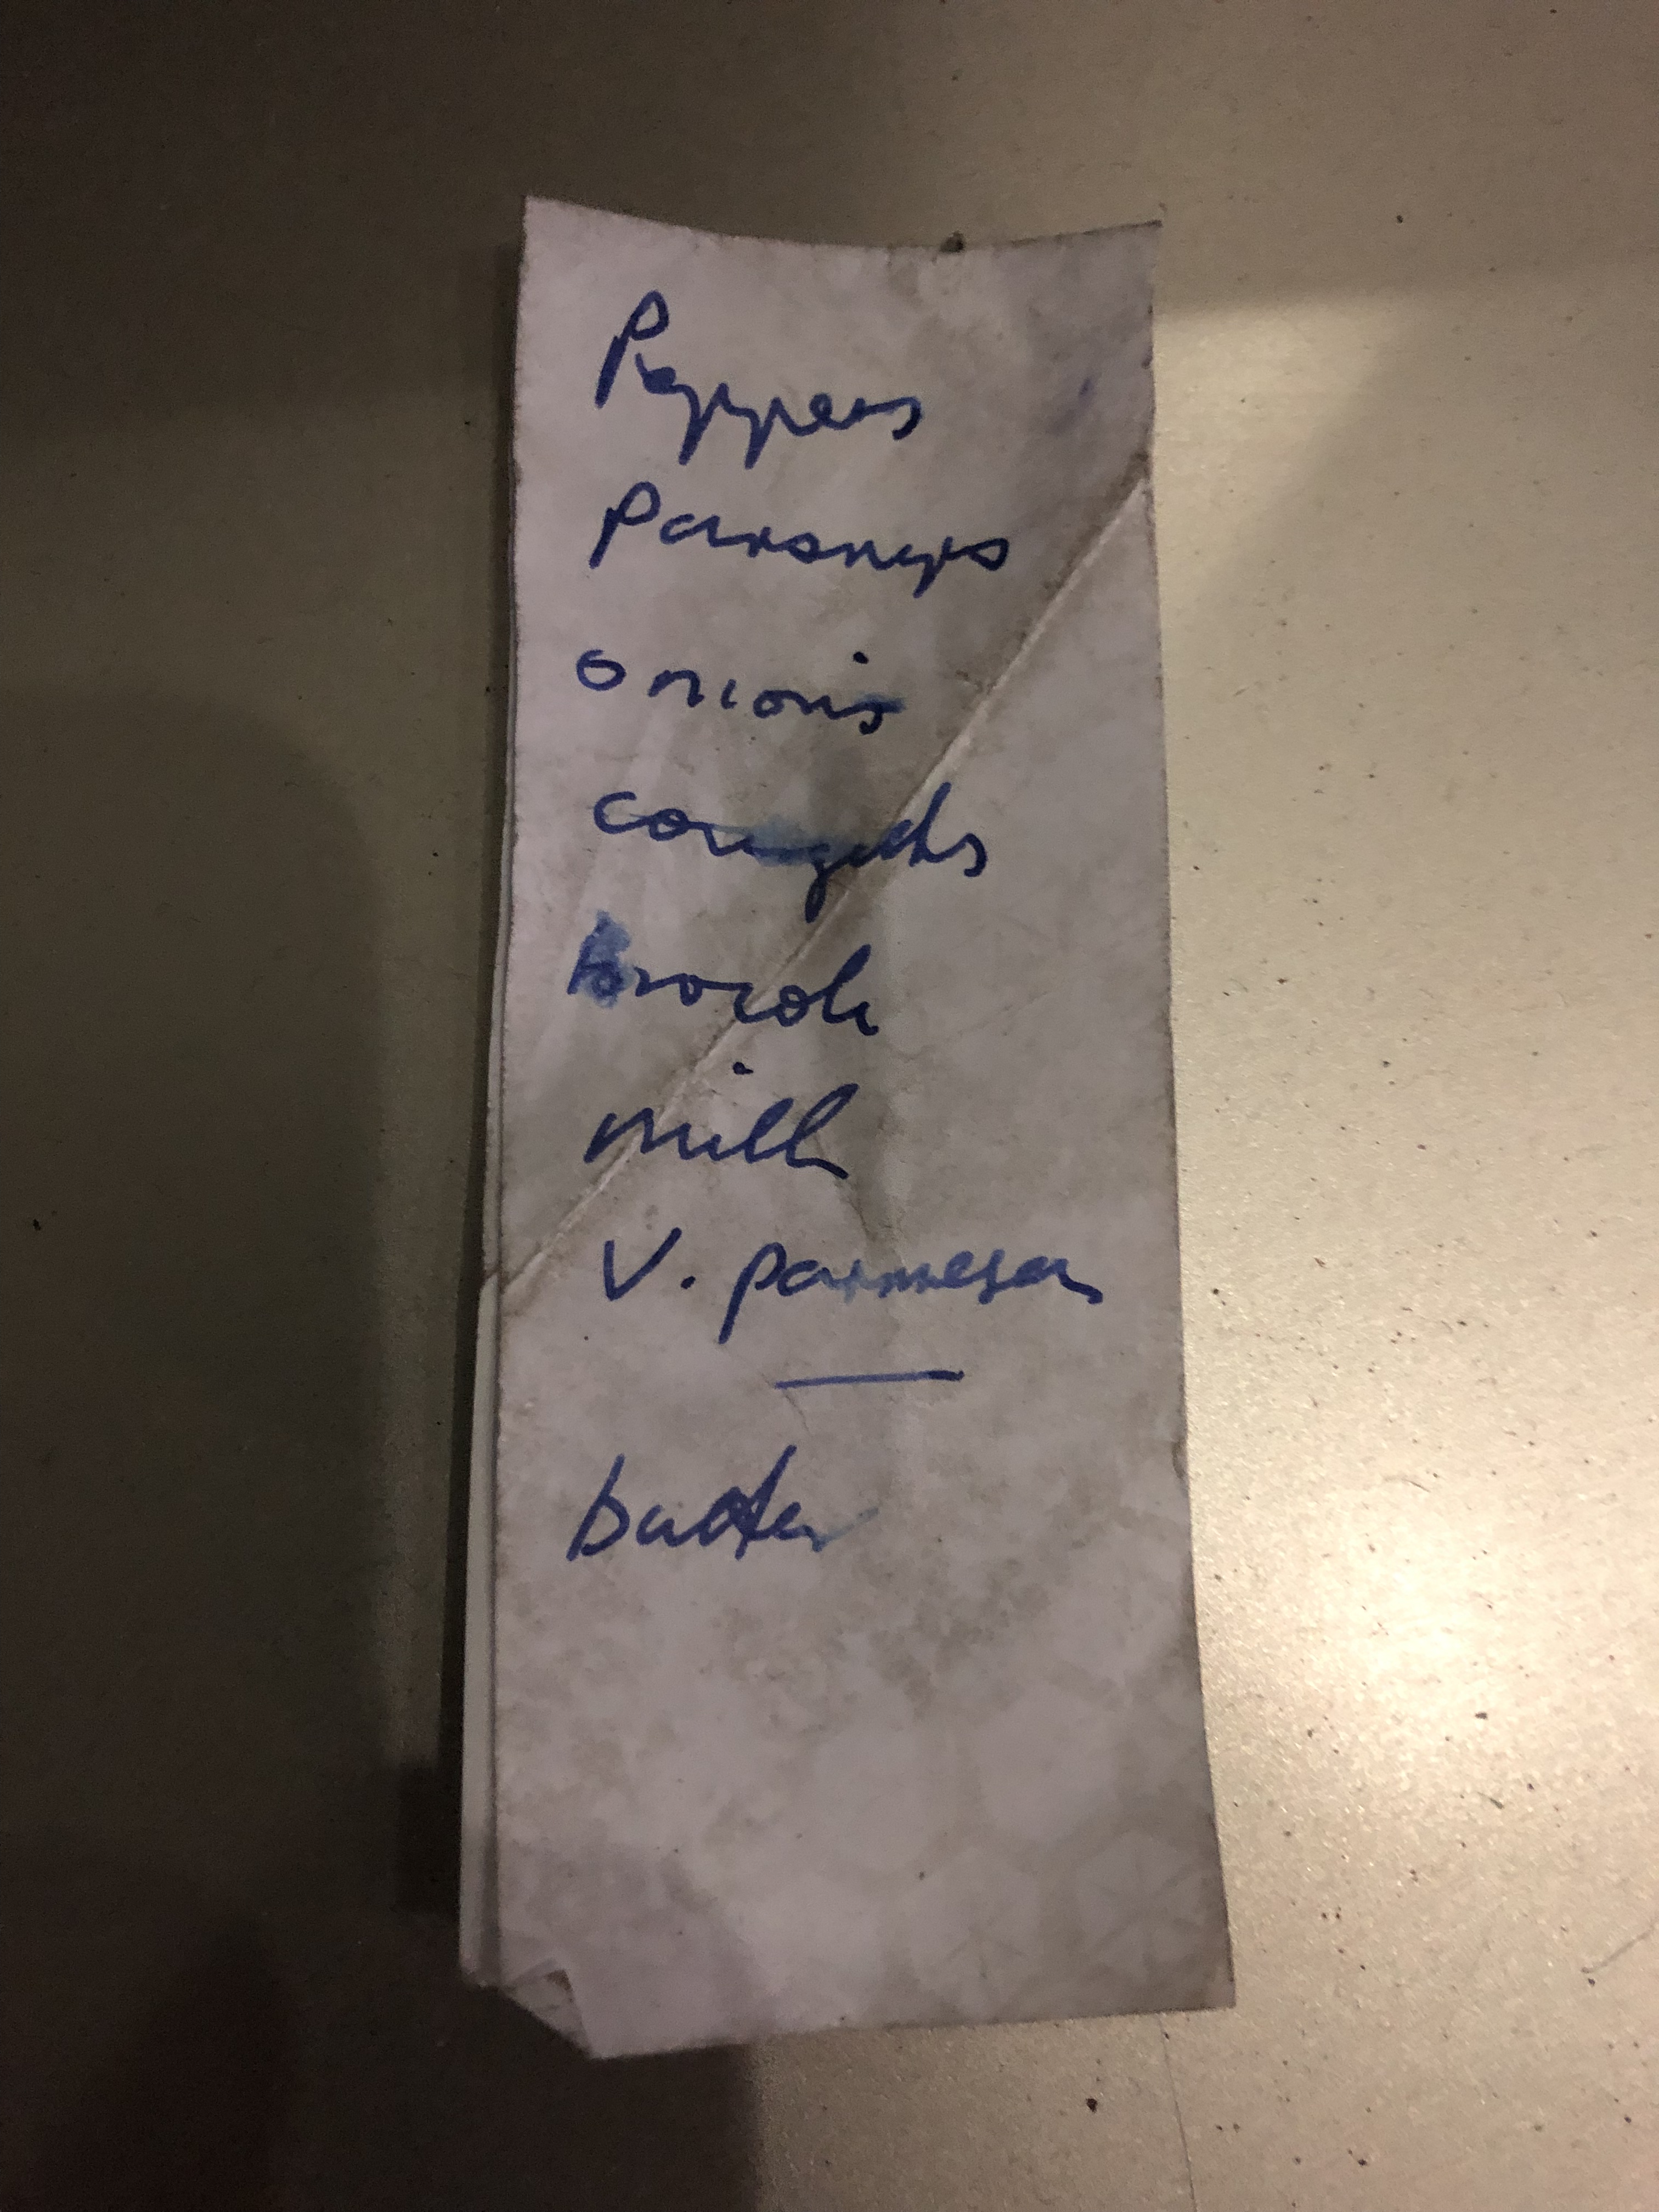 Peppers
Parsnips
onions
courgetts
brocoli
milk
V. parmesan
butter